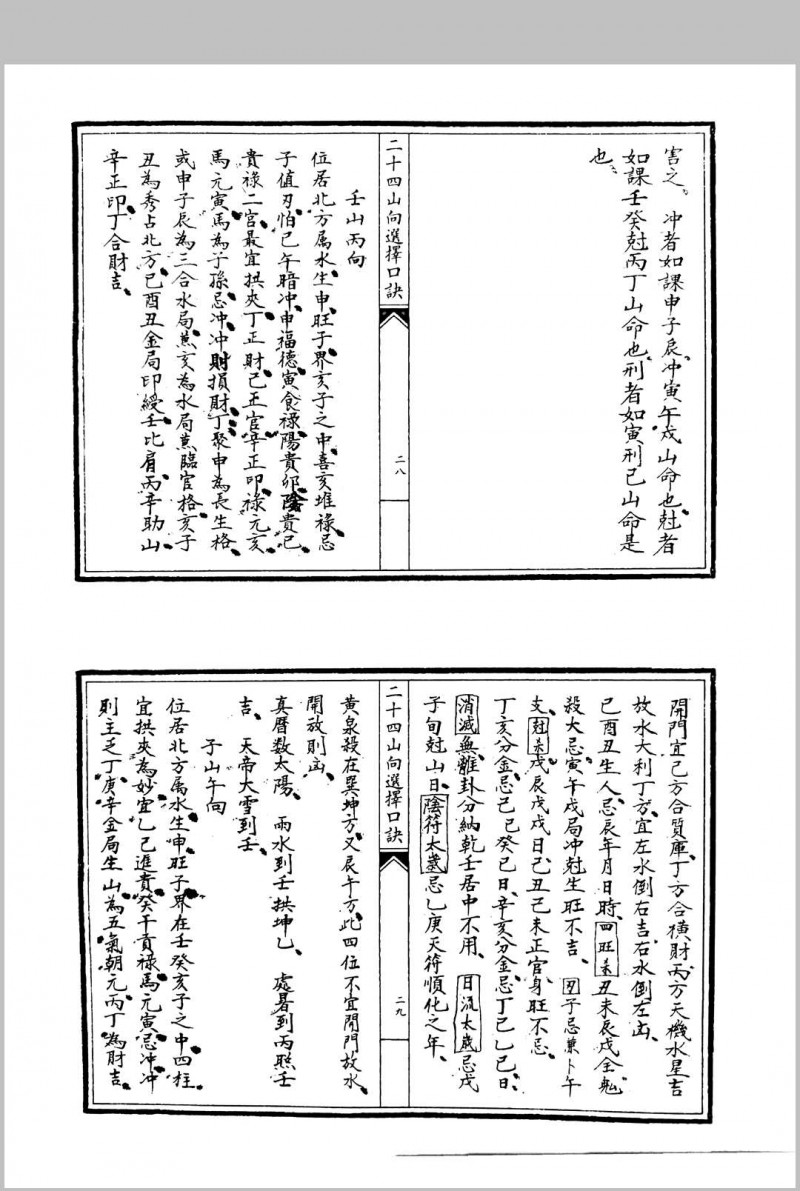 害之。冲者如課申子辰、冲寅午戌山命也、尅者
如課壬癸尅丙丁山命也、刑者如寅刑巳山命是
也、
二十四山向選擇口訣
二八
壬山丙向
位居北方属水生申、旺子、界亥子之中、喜亥堆禄、忌
子值刃、怕巳午暗冲、申福德、寅食禄、陽貴卯、陰貴巳、
貴禄二宫最宜拱夹、丁正財、己正官、辛正印、禄元亥、
馬元寅、馬為子孫忌冲、冲財損財、丁聚申為長生格、
或申子辰為三合水局、蒸亥為水局、蒸臨官格、亥子
丑為秀占北方、巳酉丑金局印綬、壬比肩、丙辛助山、
辛正印、丁合財吉、
開門宜己方合質庫、丁方合横財、丙方天機水星吉、
放水大利丁方、宜左水倒右吉、右水倒左凶、
巳酉丑生人忌辰年月日時、四旺煞丑未辰戌全尅
殺大忌、寅午戌局冲尅生旺不吉、丑子忌兼卜午
支、尅煞戊辰戊戌日己丑己未正官、身旺不忌、
丁亥分金、忌己巳癸巳日、辛亥分金、忌丁巳乙巳日、
消滅無、離卦分納乾壬居中不用、日流太歲忌戊
子旬尅山日、陰符太歲忌乙庚天符順化之年、
二十四山向選擇口訣
二九
黄泉殺在巽坤方、又辰午方、此四位不宜開門放水、
開放則凶、
真曆数太陽、雨水到壬拱坤乙、處暑到丙照壬
吉、天帝大雪到壬、
子山午向
位居北方属水生申、旺子、界在壬癸亥子之中、四柱
宜拱夹為妙、宜乙己進貴、癸干貢禄、馬元寅忌冲、冲
則主乏丁、庚辛金局生山、為五氣朝元、丙丁為財吉、